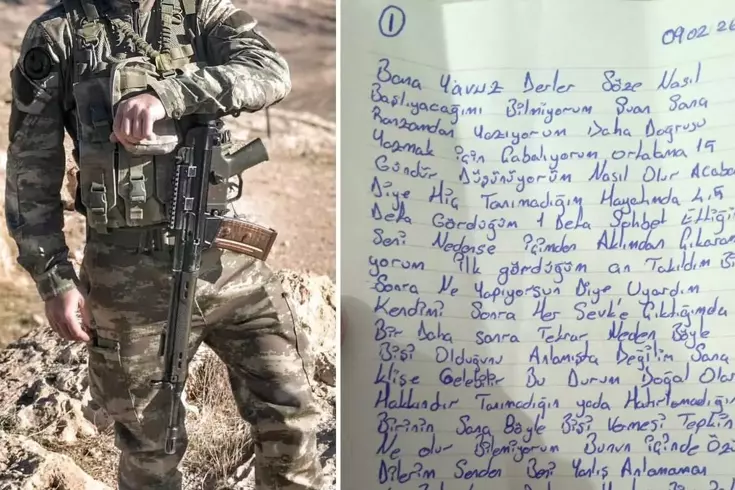 1
09.02.26
Bana Yavuz Derler Söze Nasıl
Başlıyacağımı Bilmiyorum Şuan Sana
Ranzamdan Yazıyorum Daha Doğrusu
Yazmak için Çabalıyorum ortalama 15
Gündür Düşünüyorum Nasıl Olur Acaba
Diye Hiç Tanımadığım Hayatımda 4,5
Defa Gördüğüm 1 Defa Sohbet Ettiğim
Seni Nedense içimden Aklımdan Çıkaramı
yorum ilk gördüğüm an Takıldım
Sonra Ne Yapıyorsun Diye Uyardım
Kendimi Sonra Her Sevk'e Çıktığımda
Bir Daha sonra Tekrar Neden Böyle
Bişi Olduğunu Anlamışta Değilim Sana
klişe Gelebilir Bu Durum Doğal Olar
Hakkındır Tanımadığın yada Hatırlamadığın
Birinin Sana Böyle Bişi Vermesi Tepkin
Ne olur Bilemiyorum Bunun içinde Özü
Dilerim Senden Beni Yanlış Anlamaman